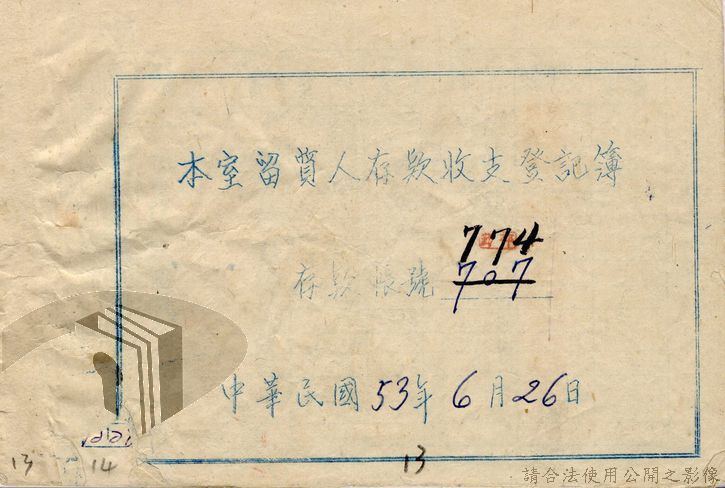 本室留質人存款收支登記簿
774
存款帳號 707
中華民國53年6月26日
13
14
13
請合法使用公開之影像